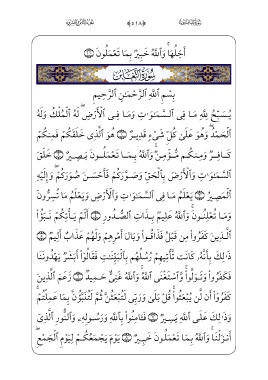 أَجَلُهَا ۚ وَٱللَّهُ خَبِيرٌۢ بِمَا تَعْمَلُونَ ١١
سُورَةُ التَّغَابُنِ
بِسْمِ ٱللَّهِ ٱلرَّحْمَٰنِ ٱلرَّحِيمِ
يُسَبِّحُ لِلَّهِ مَا فِى ٱلسَّمَٰوَٰتِ وَمَا فِى ٱلْأَرْضِ ۖ لَهُ ٱلْمُلْكُ وَلَهُ
ٱلْحَمْدُ ۖ وَهُوَ عَلَىٰ كُلِّ شَىْءٍ قَدِيرٌ ١ هُوَ ٱلَّذِى خَلَقَكُمْ فَمِنكُمْ
كَافِرٌ وَمِنكُم مُّؤْمِنٌ ۚ وَٱللَّهُ بِمَا تَعْمَلُونَ بَصِيرٌ ٢ خَلَقَ
ٱلسَّمَٰوَٰتِ وَٱلْأَرْضَ بِٱلْحَقِّ وَصَوَّرَكُمْ فَأَحْسَنَ صُوَرَكُمْ ۖ وَإِلَيْهِ
ٱلْمَصِيرُ ٣ يَعْلَمُ مَا فِى ٱلسَّمَٰوَٰتِ وَٱلْأَرْضِ وَيَعْلَمُ مَا تُسِرُّونَ
وَمَا تُعْلِنُونَ ۚ وَٱللَّهُ عَلِيمٌۢ بِذَاتِ ٱلصُّدُورِ ٤ أَلَمْ يَأْتِكُمْ نَبَؤُا۟
ٱلَّذِينَ كَفَرُوا۟ مِن قَبْلُ فَذَاقُوا۟ وَبَالَ أَمْرِهِمْ وَلَهُمْ عَذَابٌ أَلِيمٌ ٥
ذَٰلِكَ بِأَنَّهُۥ كَانَت تَّأْتِيهِمْ رُسُلُهُم بِٱلْبَيِّنَٰتِ فَقَالُوٓا۟ أَبَشَرٌ يَهْدُونَنَا
فَكَفَرُوا۟ وَتَوَلَّوا۟ ۚ وَّٱسْتَغْنَى ٱللَّهُ ۚ وَٱللَّهُ غَنِىٌّ حَمِيدٌ ٦ زَعَمَ ٱلَّذِينَ
كَفَرُوٓا۟ أَن لَّن يُبْعَثُوا۟ ۚ قُلْ بَلَىٰ وَرَبِّى لَتُبْعَثُنَّ ثُمَّ لَتُنَبَّؤُنَّ بِمَا عَمِلْتُمْ ۚ
وَذَٰلِكَ عَلَى ٱللَّهِ يَسِيرٌ ٧ فَـَٔامِنُوا۟ بِٱللَّهِ وَرَسُولِهِۦ وَٱلنُّورِ ٱلَّذِىٓ
أَنزَلْنَا ۚ وَٱللَّهُ بِمَا تَعْمَلُونَ خَبِيرٌ ٨ يَوْمَ يَجْمَعُكُمْ لِيَوْمِ ٱلْجَمْعِ ۖ